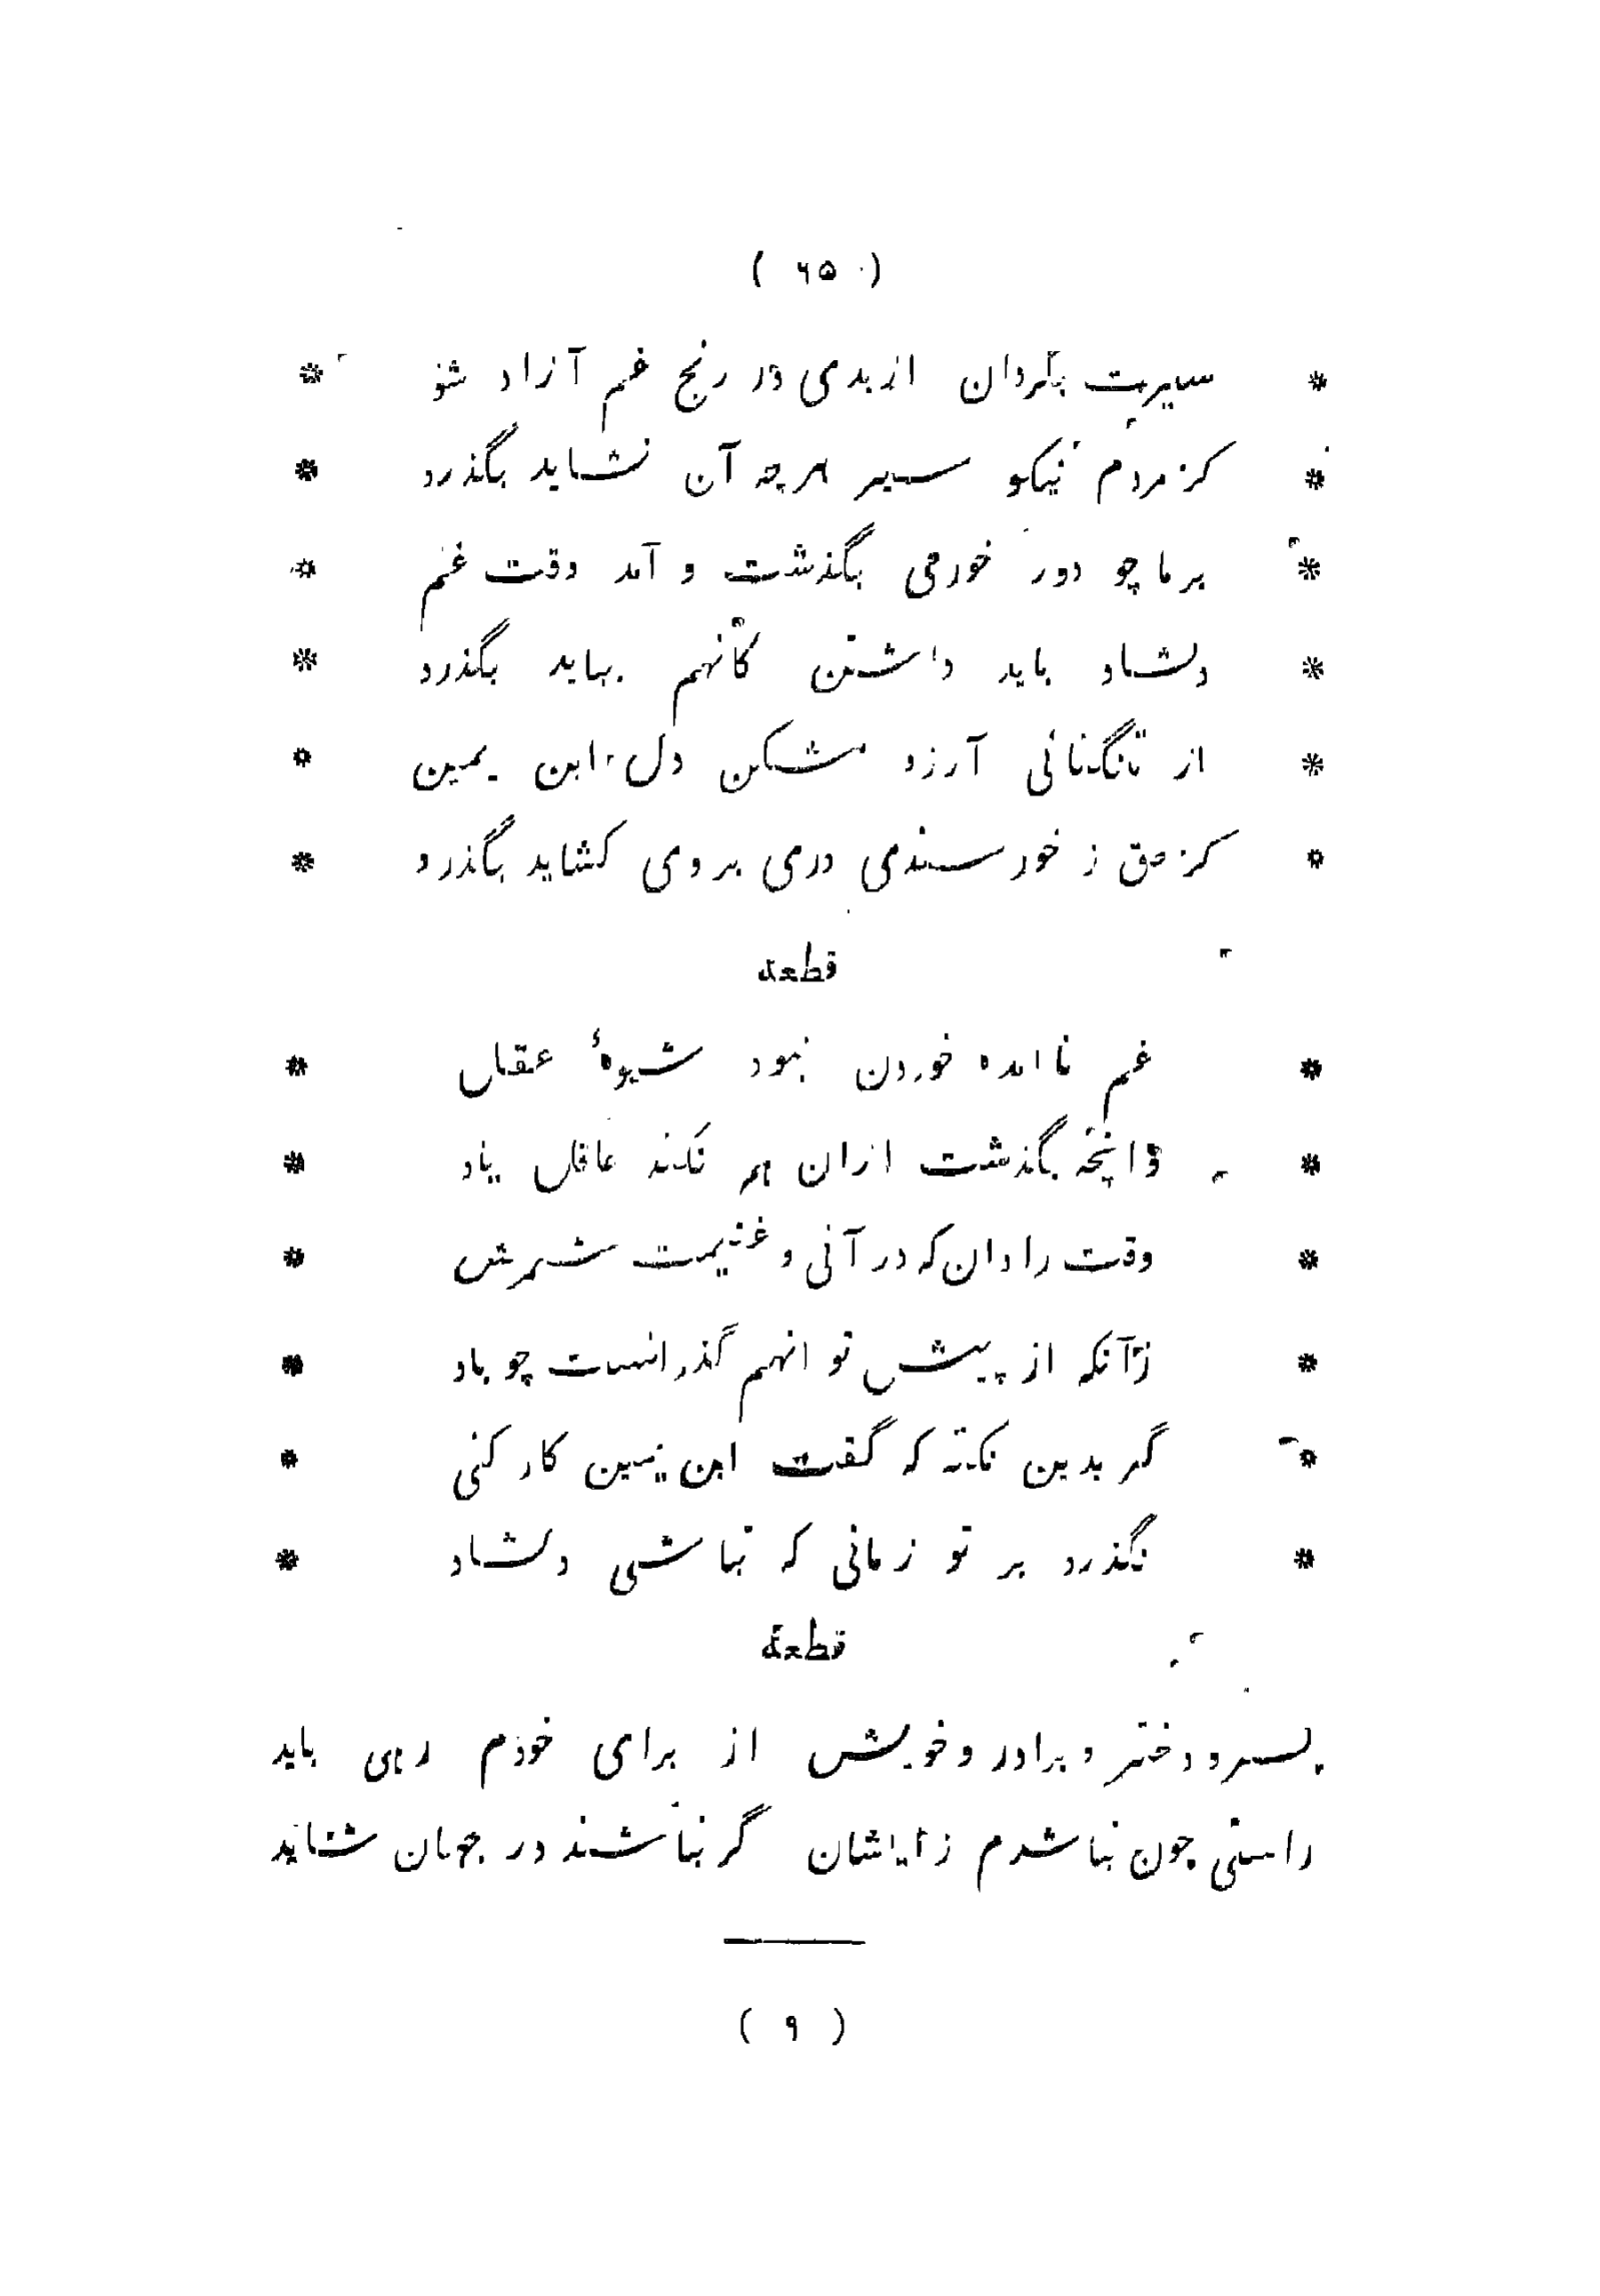 ( ۶۵ )
* سیرت بگردان از بدی در رنج غم آزاد شو *
* کز مردم نیکو سیر هر چه آن نشاید بگذرد *
* بر ما چو دور خورمی بگذشت و آمد وقت غم *
* دلشاد باید داشتن کانهم بباید بگذرد *
* از تنگنائی آرزو مشکن دل ابن یمین *
* کز حق ز خورسندی دری بر وی کشاید بگذرد *
قطعه
* غم ناامده خوردن نبود شیوهٔ عقال *
* وانچه بگذشت ازان هم نکند عاقل یاد *
* وقت را دان که در آنی و غنیمت شمرش *
* زآنکه از پیش تو انهم گذرانست چو باد *
* گر بدین نکته که گفت ابن یمین کار کنی *
* نگذرد بر تو زمانی که نباشی دلشاد *
قطعه
پسر و دختر و برادر و خویش از برای خودم رهی باید
راستی چون نباشدم زایشان گر نباشند در جهان شاید
( ۹ )